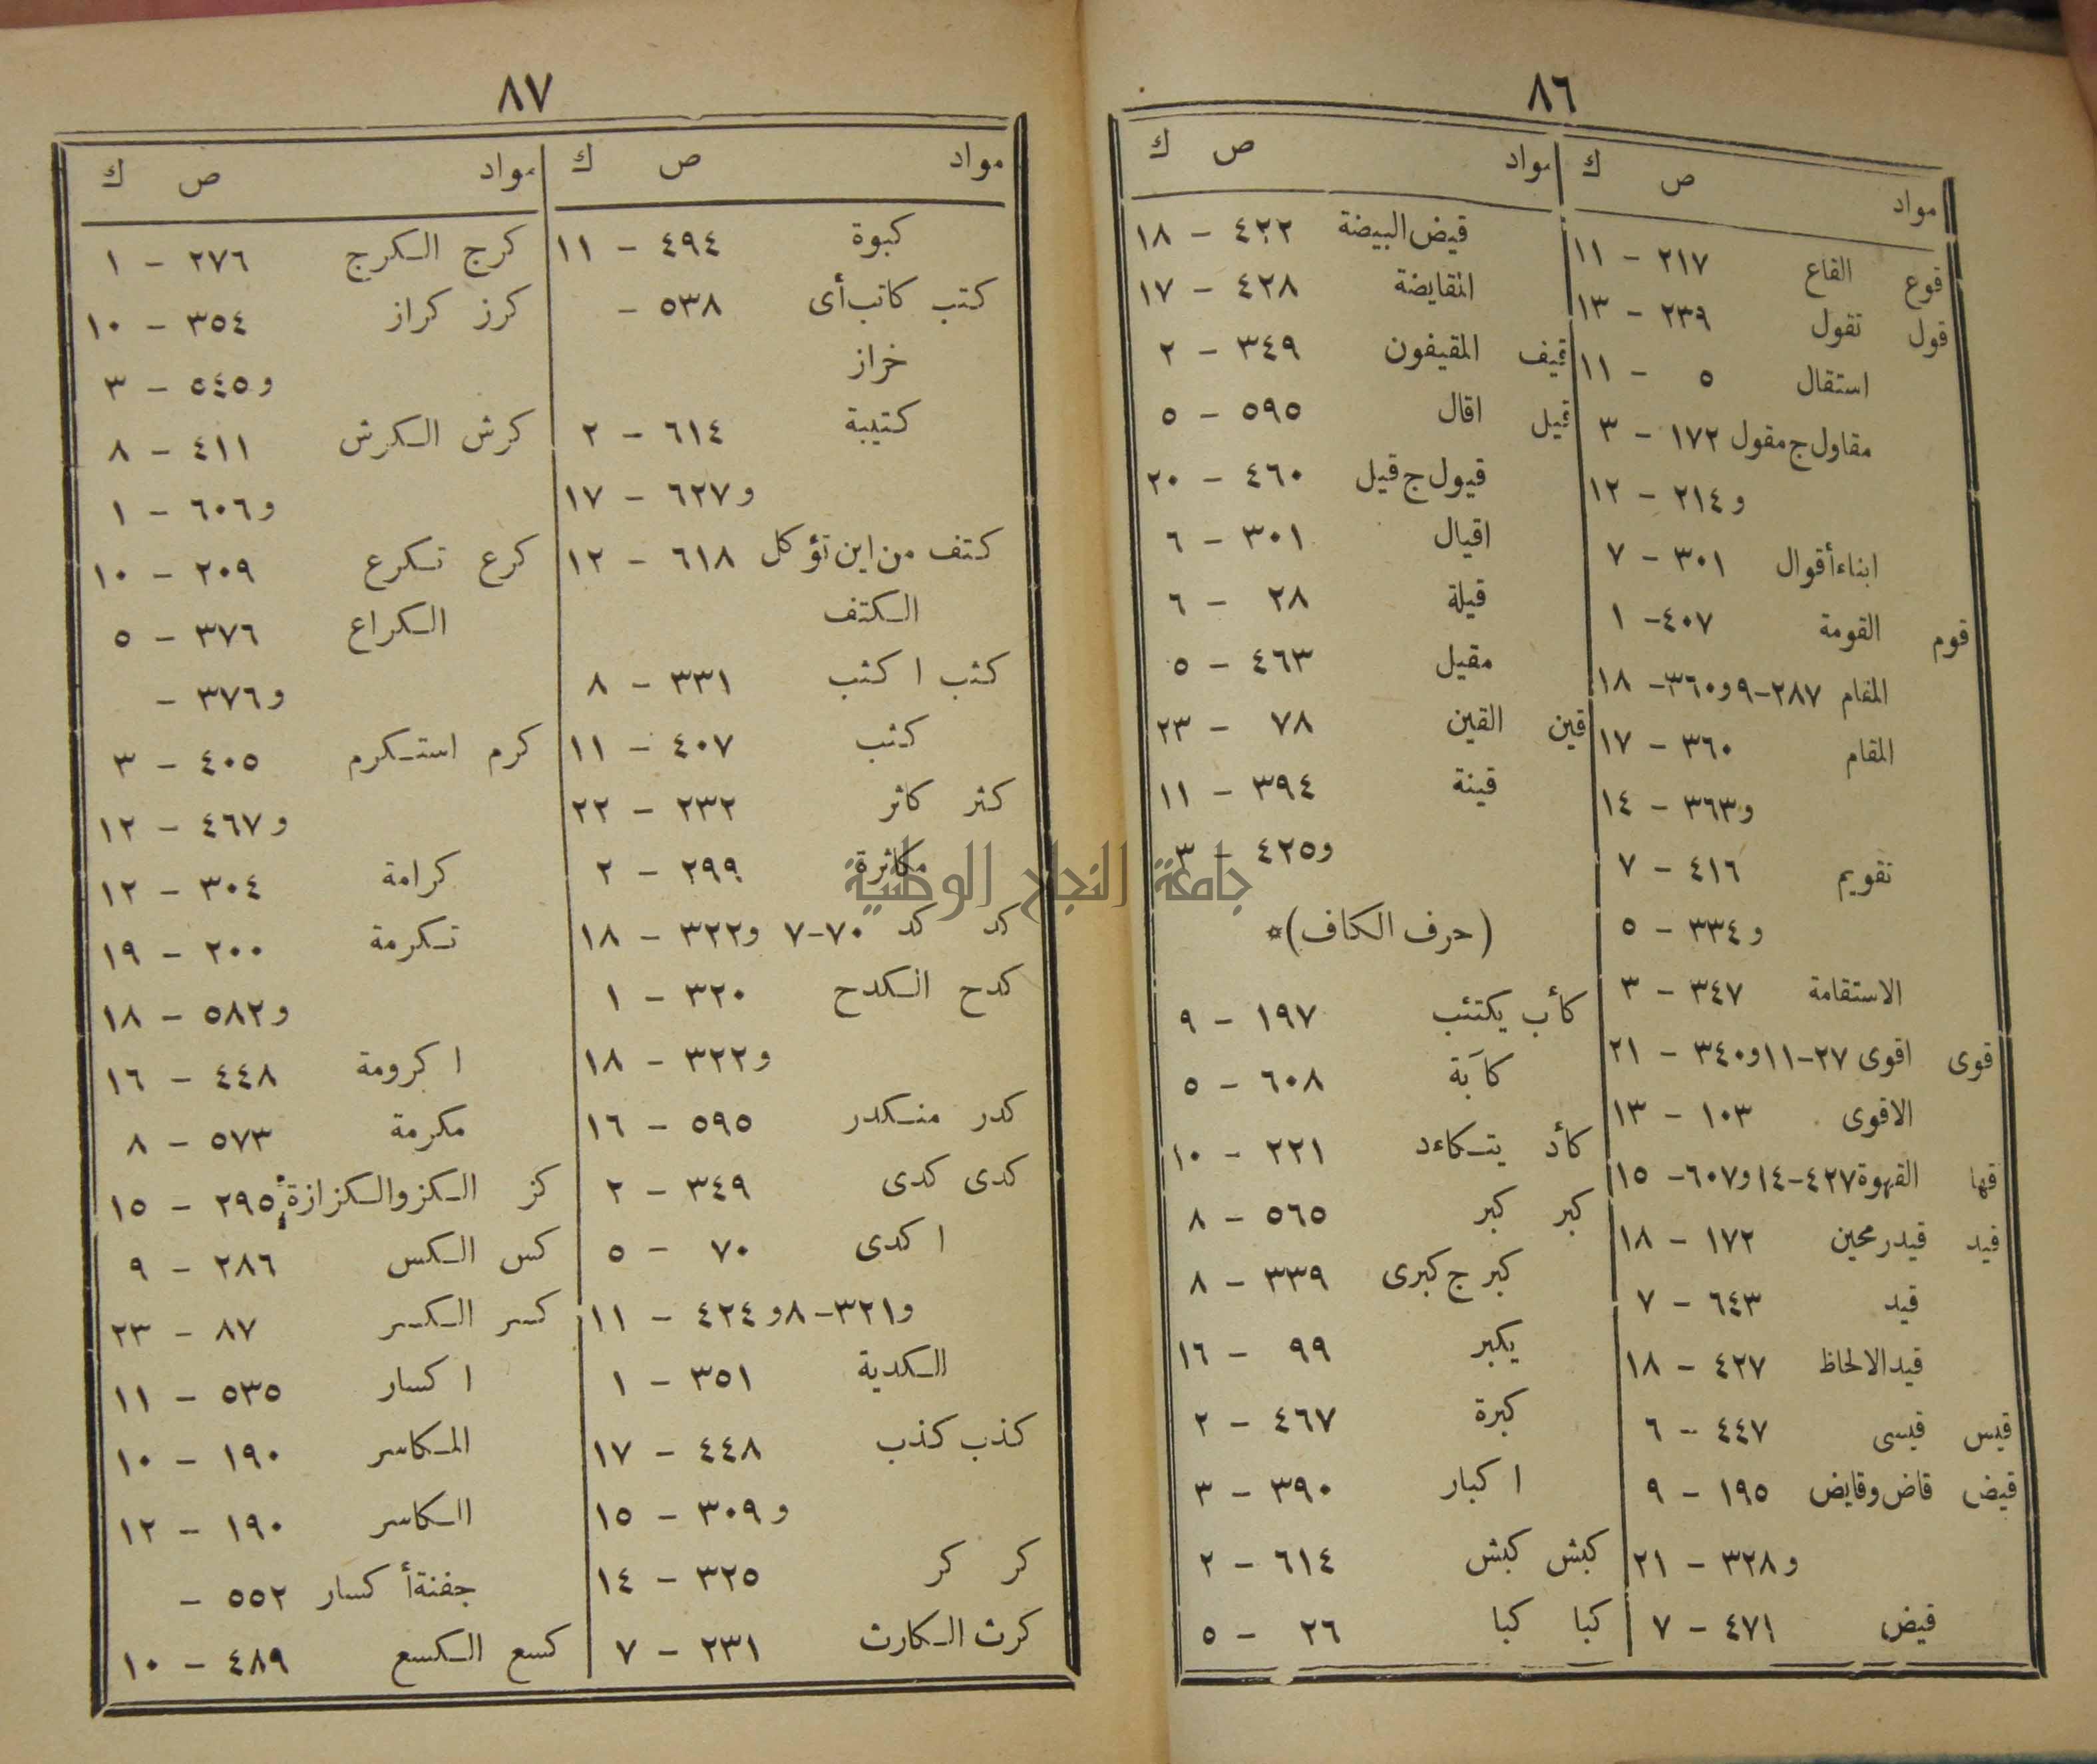 ٨٦
مواد ص ك
قوع القاع ٢١٧ - ١١
قول تقول ٢٣٩ - ١٣
استقال ٥ - ١١
مقاول ج مقول ١٧٢ - ٣
و٢١٤ - ١٢
ابناء أقوال ٣٠١ - ٧
قوم القومة ٤٠٧ - ١
المقام ٢٨٧-٩ و٣٦٠- ١٨
المقام ٣٦٠ - ١٧
و٣٦٣ - ١٤
تقويم ٤١٦ - ٧
و٣٣٤ - ٥
الاستقامة ٣٤٧ - ٣
قوى اقوى ٢٧-١١ و٣٤٠ - ٢١
الاقوى ١٠٣ - ١٣
قها القهوة ٤٢٧-١٤ و٦٠٧- ١٥
قيد قيدرمحين ١٧٢ - ١٨
قيد ٦٤٣ - ٧
قيد الالحاظ ٤٢٧ - ١٨
قيس قيسى ٤٤٧ - ٦
قيض قاض وقايض ١٩٥ - ٩
و٣٢٨ - ٢١
قيض ٤٧١ - ٧
مواد ص ك
قيض البيضة ٤٢٢ - ١٨
المقايضة ٤٢٨ - ١٧
قيف المقيفون ٣٤٩ - ٢
قيل اقال ٥٩٥ - ٥
قيول ج قيل ٤٦٠ - ٢٠
اقيال ٣٠١ - ٦
قيلة ٢٨ - ٦
مقيل ٤٦٣ - ٥
قين القين ٧٨ - ٢٣
قينة ٣٩٤ - ١١
و٤٢٥ - ٣
(حرف الكاف)*
كأب يكتئب ١٩٧ - ٩
كآبة ٦٠٨ - ٥
كأد يتكاءد ٢٢١ - ١٠
كبر كبر ٥٦٥ - ٨
كبر ج كبرى ٣٣٩ - ٨
يكبر ٩٩ - ١٦
كبرة ٤٦٧ - ٢
اكبار ٣٩٠ - ٣
كبش كبش ٦١٤ - ٢
كبا كبا ٢٦ - ٥
٨٧
مواد ص ك
كبوة ٤٩٤ - ١١
كتب كاتب أى ٥٣٨ -
خراز
كتيبة ٦١٤ - ٢
و٦٢٧ - ١٧
كتف من اين تؤكل ٦١٨ - ١٢
الكتف
كثب اكثب ٣٣١ - ٨
كثب ٤٠٧ - ١١
كثر كاثر ٢٣٢ - ٢٢
مكاثرة ٢٩٩ - ٢
كد كد ٧٠-٧ و٣٢٢ - ١٨
كدح الكدح ٣٢٠ - ١
و٣٢٢ - ١٨
كدر منكدر ٥٩٥ - ١٦
كدى كدى ٣٤٩ - ٢
اكدى ٧٠ - ٥
و٣٢١-٨ و٤٢٤ - ١١
الكدية ٣٥١ - ١
كذب كذب ٤٤٨ - ١٧
و٣٠٩ - ١٥
كر كر ٣٢٥ - ١٤
كرث الكارث ٢٣١ - ٧
مواد ص ك
كرج الكرج ٢٧٦ - ١
كرز كراز ٣٥٤ - ١٠
و٥٤٥ - ٣
كرش الكرش ٤١١ - ٨
و٦٠٦ - ١
كرع تكرع ٢٠٩ - ١٠
الكراع ٣٧٦ - ٥
و٣٧٦ -
كرم استكرم ٤٠٥ - ٣
و٤٦٧ - ١٢
كرامة ٣٠٤ - ١٢
تكرمة ٢٠٠ - ١٩
و٥٨٢ - ١٨
اكرومة ٤٤٨ - ١٦
مكرمة ٥٧٣ - ٨
كز الكز والكزازة ٢٩٥ - ١٥
كس الكس ٢٨٦ - ٩
كسر الكسر ٨٧ - ٢٣
اكسار ٥٣٥ - ١١
المكاسر ١٩٠ - ١٠
الكاسر ١٩٠ - ١٢
جفنة أكسار ٥٥٢ -
كسع الكسع ٤٨٩ - ١٠
جامعة النجاح الوطنية